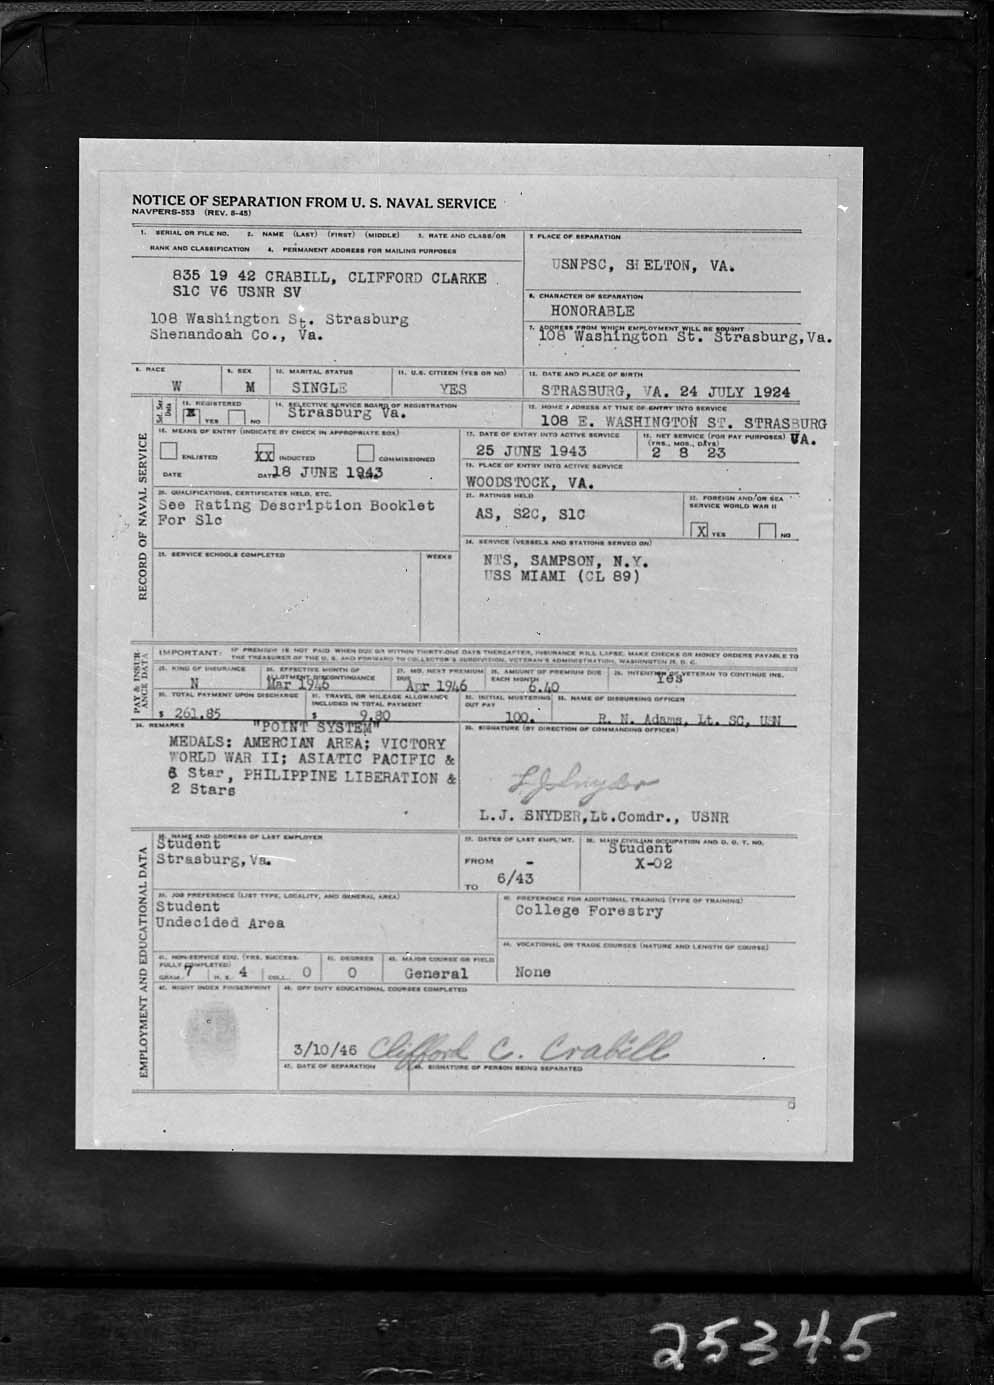 NOTICE OF SEPARATION FROM U. S. NAVAL SERVICE
NAVPERS-553 (REV. 8-45)
1. SERIAL OR FILE NO. 2. NAME (LAST) (FIRST) (MIDDLE) 3. RATE AND CLASS/OR
RANK AND CLASSIFICATION 4. PERMANENT ADDRESS FOR MAILING PURPOSES
835 19 42 CRABILL, CLIFFORD CLARKE
S1C V6 USNR SV
108 Washington St. Strasburg
Shenandoah Co., Va.
5 PLACE OF SEPARATION
USNPSC, SHELTON, VA.
6. CHARACTER OF SEPARATION
HONORABLE
7. ADDRESS FROM WHICH EMPLOYMENT WILL BE SOUGHT
108 Washington St. Strasburg, Va.
8. RACE
W
9. SEX
M
10. MARITAL STATUS
SINGLE
11. U.S. CITIZEN (YES OR NO)
YES
12. DATE AND PLACE OF BIRTH
STRASBURG, VA. 24 JULY 1924
Sel. Ser. Data
13. REGISTERED
X YES NO
14. SELECTIVE SERVICE BOARD OF REGISTRATION
Strasburg Va.
15. HOME ADDRESS AT TIME OF ENTRY INTO SERVICE
108 E. WASHINGTON ST. STRASBURG
VA.
RECORD OF NAVAL SERVICE
16. MEANS OF ENTRY (INDICATE BY CHECK IN APPROPRIATE BOX)
ENLISTED XX INDUCTED COMMISSIONED
DATE DATE 18 JUNE 1943
17. DATE OF ENTRY INTO ACTIVE SERVICE
25 JUNE 1943
18. NET SERVICE (FOR PAY PURPOSES)
(YRS., MOS., DAYS)
2 8 23
19. PLACE OF ENTRY INTO ACTIVE SERVICE
WOODSTOCK, VA.
20. QUALIFICATIONS, CERTIFICATES HELD, ETC.
See Rating Description Booklet
For S1c
21. RATINGS HELD
AS, S2C, S1C
22. FOREIGN AND/OR SEA
SERVICE WORLD WAR II
X YES NO
23. SERVICE SCHOOLS COMPLETED WEEKS
24. SERVICE (VESSELS AND STATIONS SERVED ON)
NTS, SAMPSON, N.Y.
USS MIAMI (CL 89)
PAY & INSURANCE DATA
IMPORTANT: IF PREMIUM IS NOT PAID WHEN DUE OR WITHIN THIRTY-ONE DAYS THEREAFTER, INSURANCE WILL LAPSE. MAKE CHECKS OR MONEY ORDERS PAYABLE TO
THE TREASURER OF THE U. S. AND FORWARD TO COLLECTOR'S SUBDIVISION, VETERAN'S ADMINISTRATION, WASHINGTON 25, D. C.
25. KIND OF INSURANCE
N
26. EFFECTIVE MONTH OF
ALLOTMENT DISCONTINUANCE
Mar 1946
27. MO. NEXT PREMIUM
DUE
Apr 1946
28. AMOUNT OF PREMIUM DUE
EACH MONTH
6.40
29. INTENTION OF VETERAN TO CONTINUE INS.
Yes
30. TOTAL PAYMENT UPON DISCHARGE
$ 261.85
31. TRAVEL OR MILEAGE ALLOWANCE
INCLUDED IN TOTAL PAYMENT
$ 9.80
32. INITIAL MUSTERING
OUT PAY
100.
33. NAME OF DISBURSING OFFICER
R. N. Adams, Lt. SC, USN
34. REMARKS
"POINT SYSTEM"
MEDALS: AMERCIAN AREA; VICTORY
WORLD WAR II; ASIATIC PACIFIC &
6 Star, PHILIPPINE LIBERATION &
2 Stars
35. SIGNATURE (BY DIRECTION OF COMMANDING OFFICER)
L J Snyder
L.J. SNYDER, Lt.Comdr., USNR
EMPLOYMENT AND EDUCATIONAL DATA
36. NAME AND ADDRESS OF LAST EMPLOYER
Student
Strasburg, Va.
37. DATES OF LAST EMPL'MT.
FROM -
TO 6/43
38. MAIN CIVILIAN OCCUPATION AND D. O. T. NO.
Student
X-02
39. JOB PREFERENCE (LIST TYPE, LOCALITY, AND GENERAL AREA)
Student
Undecided Area
40. PREFERENCE FOR ADDITIONAL TRAINING (TYPE OF TRAINING)
College Forestry
41. NON-SERVICE EDU. (YRS. SUCCESS-
FULLY COMPLETED)
GRAM. 7 H. S. 4 COLL. 0
42. DEGREES
0
43. MAJOR COURSE OR FIELD
General
44. VOCATIONAL OR TRADE COURSES (NATURE AND LENGTH OF COURSE)
None
45. RIGHT INDEX FINGERPRINT
46. OFF DUTY EDUCATIONAL COURSES COMPLETED
3/10/46 Clifford C. Crabill
47. DATE OF SEPARATION 48. SIGNATURE OF PERSON BEING SEPARATED
25345